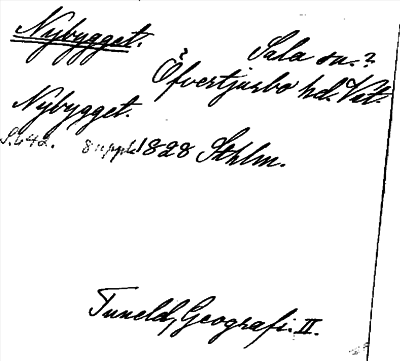 Nybygget.
Sala sn.?
Öfvertjurbo hd. Vstm.
Nybygget.
S. 42. 8 uppl. 1828 Sthlm.
Tuneld, Geografi. II.